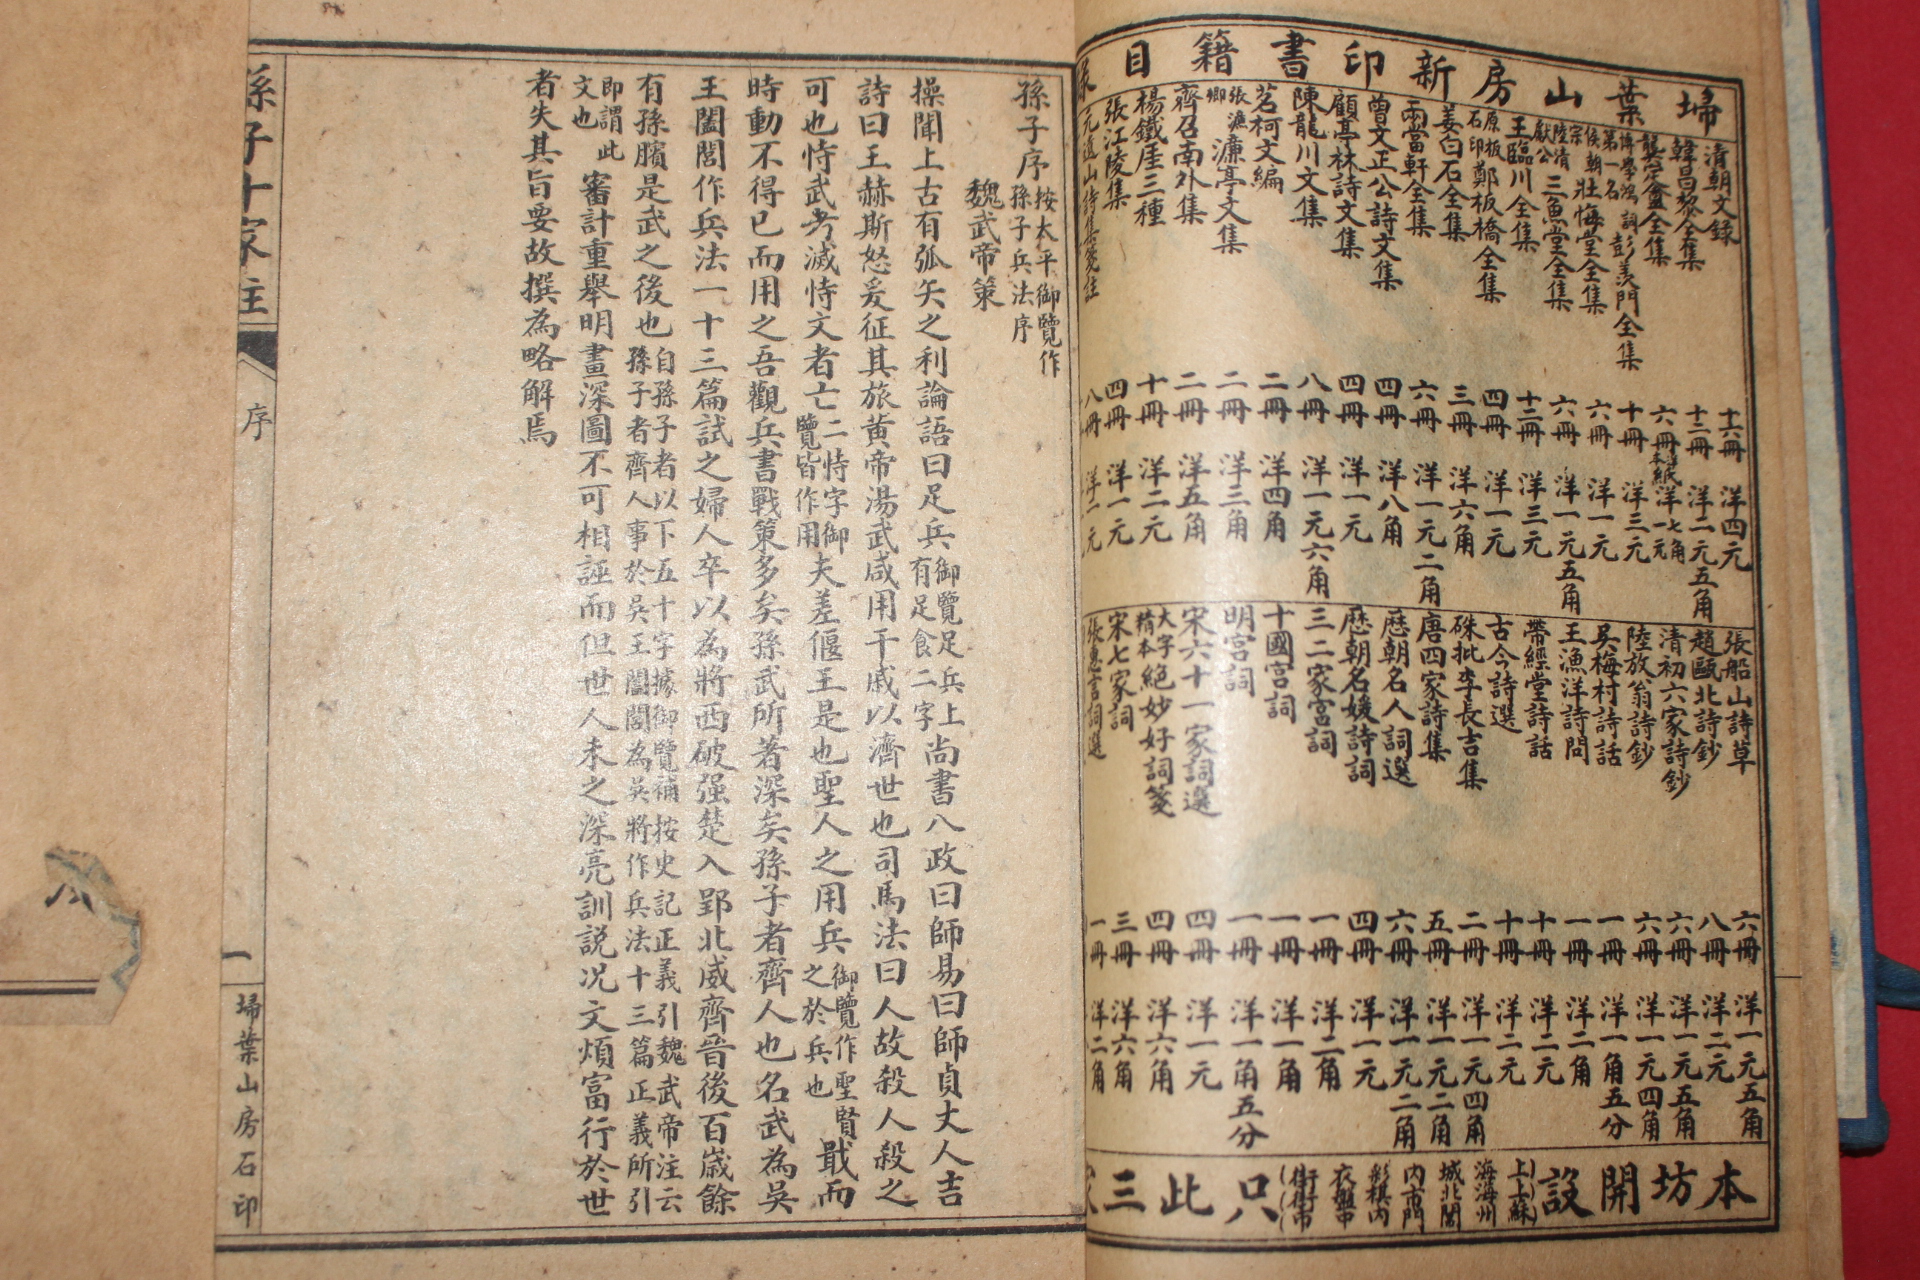 掃葉山房新印書籍目
清朝文錄 十六冊 洋四元
韓昌黎全集 十二冊 洋二元五角
龔定盦全集 六冊 本紙 洋一元七角
博學鴻詞第一名 彭羨門全集 十冊 洋三元
侯朝宗 壯悔堂全集 六冊 洋一元
陸清獻公 三魚堂全集 六冊 洋一元五角
王臨川全集 十二冊 洋三元
原板石印 鄭板橋全集 四冊 洋一元
姜白石全集 三冊 洋六角
兩當軒全集 六冊 洋一元二角
曾文正公詩文集 四冊 洋八角
顧亭林詩文集 四冊 洋一元
陳龍川文集 八冊 洋一元六角
茗柯文編 二冊 洋四角
張濂卿 濂亭文集 二冊 洋三角
齊召南外集 二冊 洋五角
楊鐵崖三種 十冊 洋二元
張江陵集 四冊 洋一元
元遺山詩集箋註 八冊 洋二元
張船山詩草 六冊 洋一元五角
趙甌北詩鈔 八冊 洋二元
清初六家詩鈔 六冊 洋一元五角
陸放翁詩鈔 六冊 洋一元四角
吳梅村詩話 一冊 洋一角五分
王漁洋詩問 一冊 洋二角
帶經堂詩話 十冊 洋二元
古今詩選 十冊 洋二元
硃批李長吉集 二冊 洋一元四角
唐四家詩集 五冊 洋一元二角
歷朝名人詞選 六冊 洋一元二角
歷朝名媛詩詞 四冊 洋一元
三二家宮詞 一冊 洋二角
十國宮詞 一冊 洋一角
明宮詞 一冊 洋一角五分
宋六十一家詞選 四冊 洋一元
大字精本 絕妙好詞箋 四冊 洋六角
宋七家詞 三冊 洋六角
張惠言詞選 一冊 洋二角
本坊開設
上上蘇
海海州
城北閶
內市門
彩棋內
衣盤中
街街市
只此三家
孫子序 按太平御覽作孫子兵法序
魏武帝策
操聞上古有弧矢之利論語曰足兵 御覽足兵上有足食二字 尚書八政曰師易曰師貞丈人吉
詩曰王赫斯怒爰征其旅黃帝湯武咸用干戚以濟世也司馬法曰人故殺人殺之
可也恃武者滅恃文者亡 二恃字御覽皆作用 夫差偃王是也聖人之用兵 御覽作聖賢之於兵也 戢而
時動不得已而用之吾觀兵書戰策多矣孫武所著深矣孫子者齊人也名武為吳
王闔閭作兵法一十三篇試之婦人卒以為將西破强楚入郢北威齊晉後百歲餘
有孫臏是武之後也 自孫子者以下五十字據御覽補按史記正義引魏武帝注云孫子者齊人事於吳王闔閭為吳將作兵法十三篇正義所引
即謂此文也 審計重舉明畫深圖不可相誣而但世人未之深亮訓說况文煩富行於世
者失其旨要故撰為略解焉
孫子十家註
序
一
掃葉山房石印